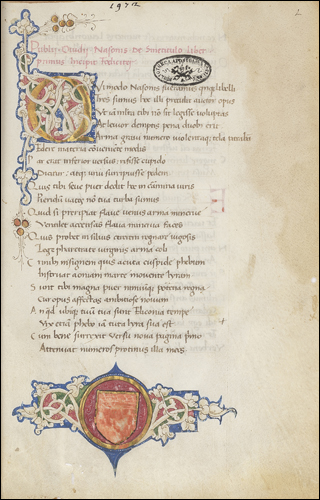 Publii Ouidii Nasonis de sine titulo liber
primus Incipit feliciter
QVi modo Nasonis fueramus quinq; libelli
Tres sumus hoc illi pretulit auctor opus
Vt iam nulla tibi nos sit legisse voluptas
At leuior demptis pena duobus erit
Arma graui numero violentaq; bella parabam
Edere materia conueniente modis
Par erat inferior versus: risisse cupido
Dicitur: atq; unum surripuisse pedem
Quis tibi seue puer dedit hoc in carmina iuris
Pieridum uates nõ tua turba sumus
Quid si preripiat flaue venus arma minerue
Ventilet accensas flaua minerua faces
Quis probet in siluis cererem regnare iugosis
Lege pharetrate virginis arma coli
Crinibus insignem quis acuta cuspide phebum
Instruat aoniam marte mouente lyram
Sunt tibi magna puer nimiumq; potentia regna
Cur opus affectas ambitiose nouum
An quod ubiq; tuum tua sunt Eliconia tempe
Vix etiam phebo iam tuta lyra sua est
Cum bene surrexit versu noua pagina primo
Attenuat numeros protinus illa meos